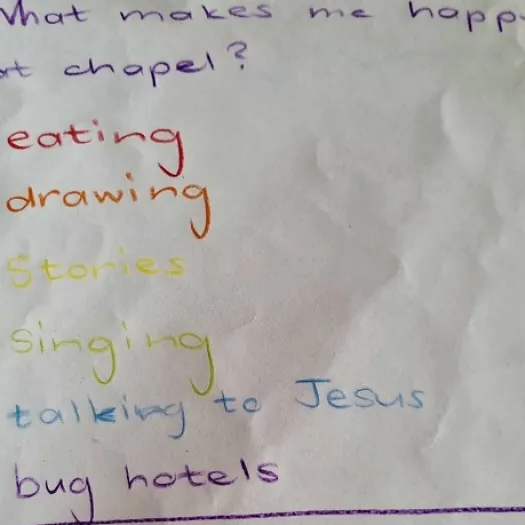 What makes me happy
at chapel?
eating
drawing
Stories
singing
talking to Jesus
bug hotels